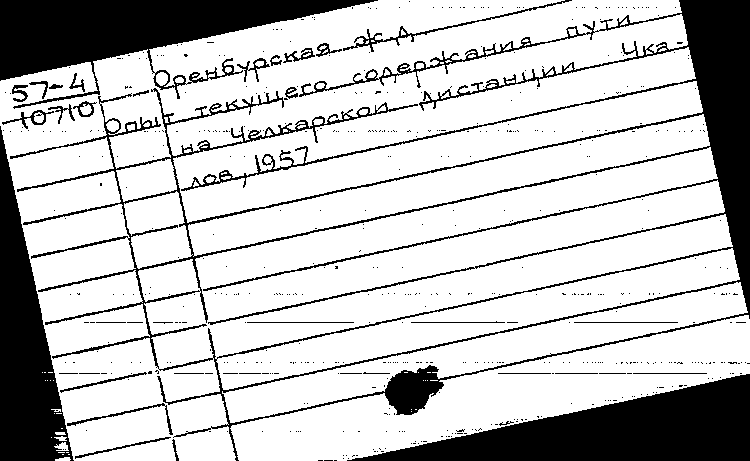 57-4
10710
Оренбурская ж.д.
Опыт текущего содержания пути
на Челкарской дистанции Чка-
лов, 1957